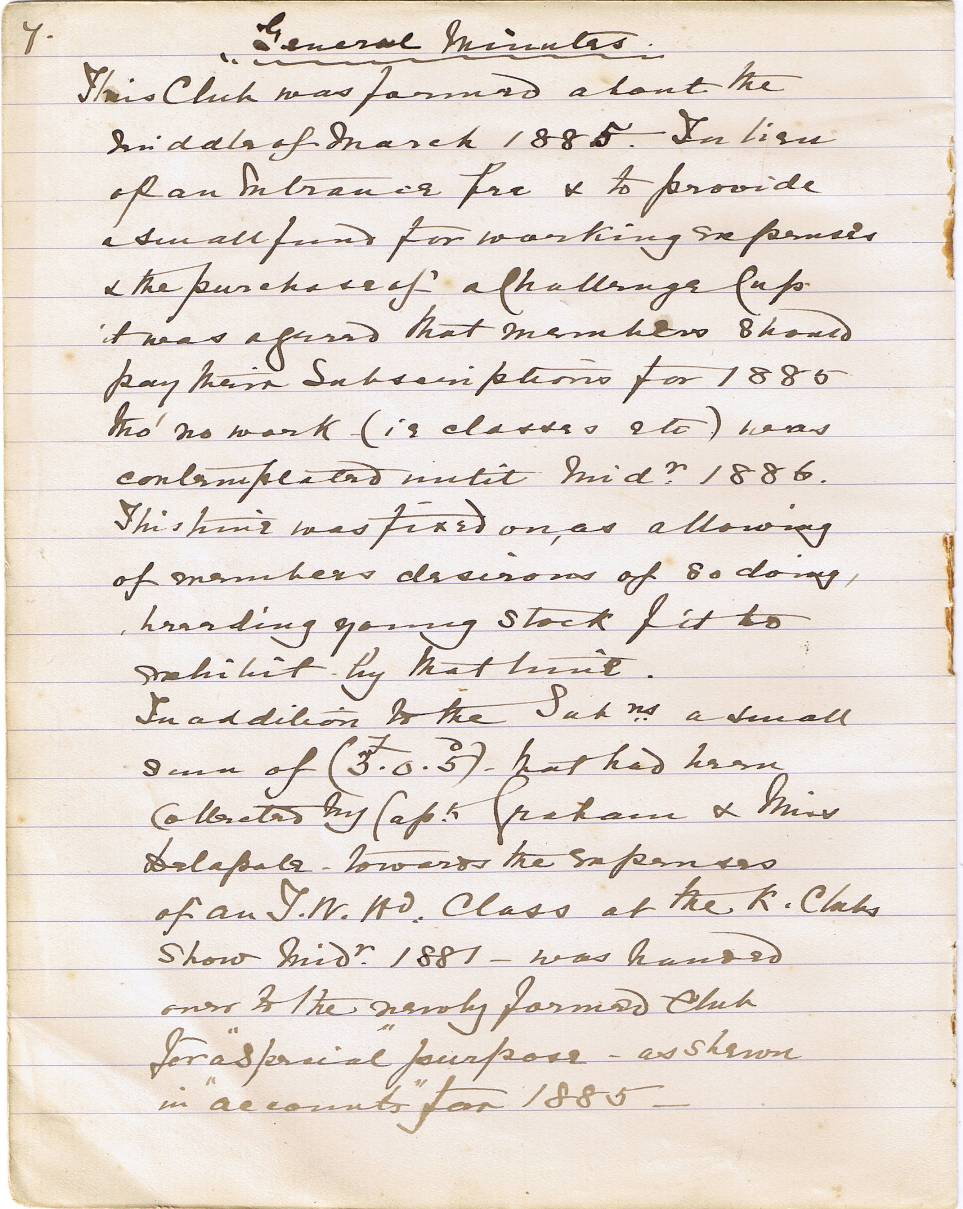 7.
"General Minutes.
This Club was formed about the
middle of March 1885. In lieu
of an Entrance fee & to provide
a small fund for working expenses
& the purchase of a Challenge Cup
it was agreed that members should
pay their Subscriptions for 1885
tho' no work (ie classes etc) was
contemplated until Midr. 1886.
This time was fixed on, as allowing
of members desirous of so doing,
breeding young stock fit to
exhibit by that time.
In addition to the Subns a small
sum of (3.0.5) - that had been
collected by Capt. Graham & Miss
Delapole - towards the expenses
of an I.W. Hd. Class at the K. Clubs
Show Midr. 1881 - was handed
over to the newly formed Club
for a "special" purpose - as shewn
in "accounts" for 1885 -